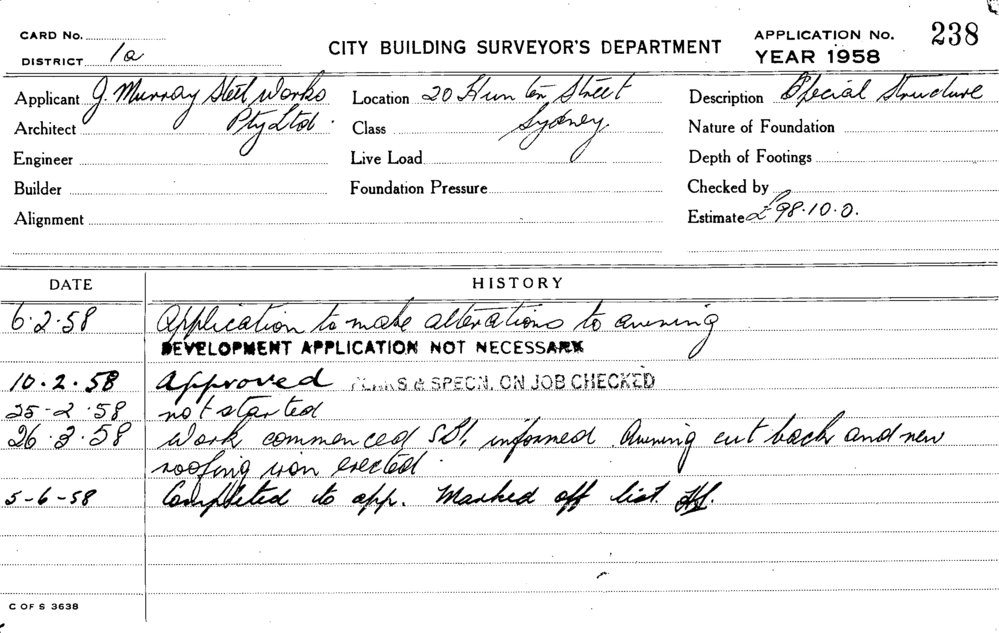 CARD No.
DISTRICT 1a
CITY BUILDING SURVEYOR'S DEPARTMENT
APPLICATION No. 238
YEAR 1958
Applicant J. Murray Steel Works
Pty Ltd.
Location 20 Hunter Street
Sydney
Description Special Structure
Architect
Class
Nature of Foundation
Engineer
Live Load
Depth of Footings
Builder
Foundation Pressure
Checked by
Alignment
Estimate £98.10.0.
DATE HISTORY
6.2.58 Application to make alterations to awning
DEVELOPMENT APPLICATION NOT NECESSARY
10.2.58 Approved PLANS & SPECN. ON JOB CHECKED
25-2.58 not started
26.3.58 Work commenced informed. Awning cut back and new
roofing iron erected.
5-6-58 Completed to app. Marked off list.
C OF S 3638